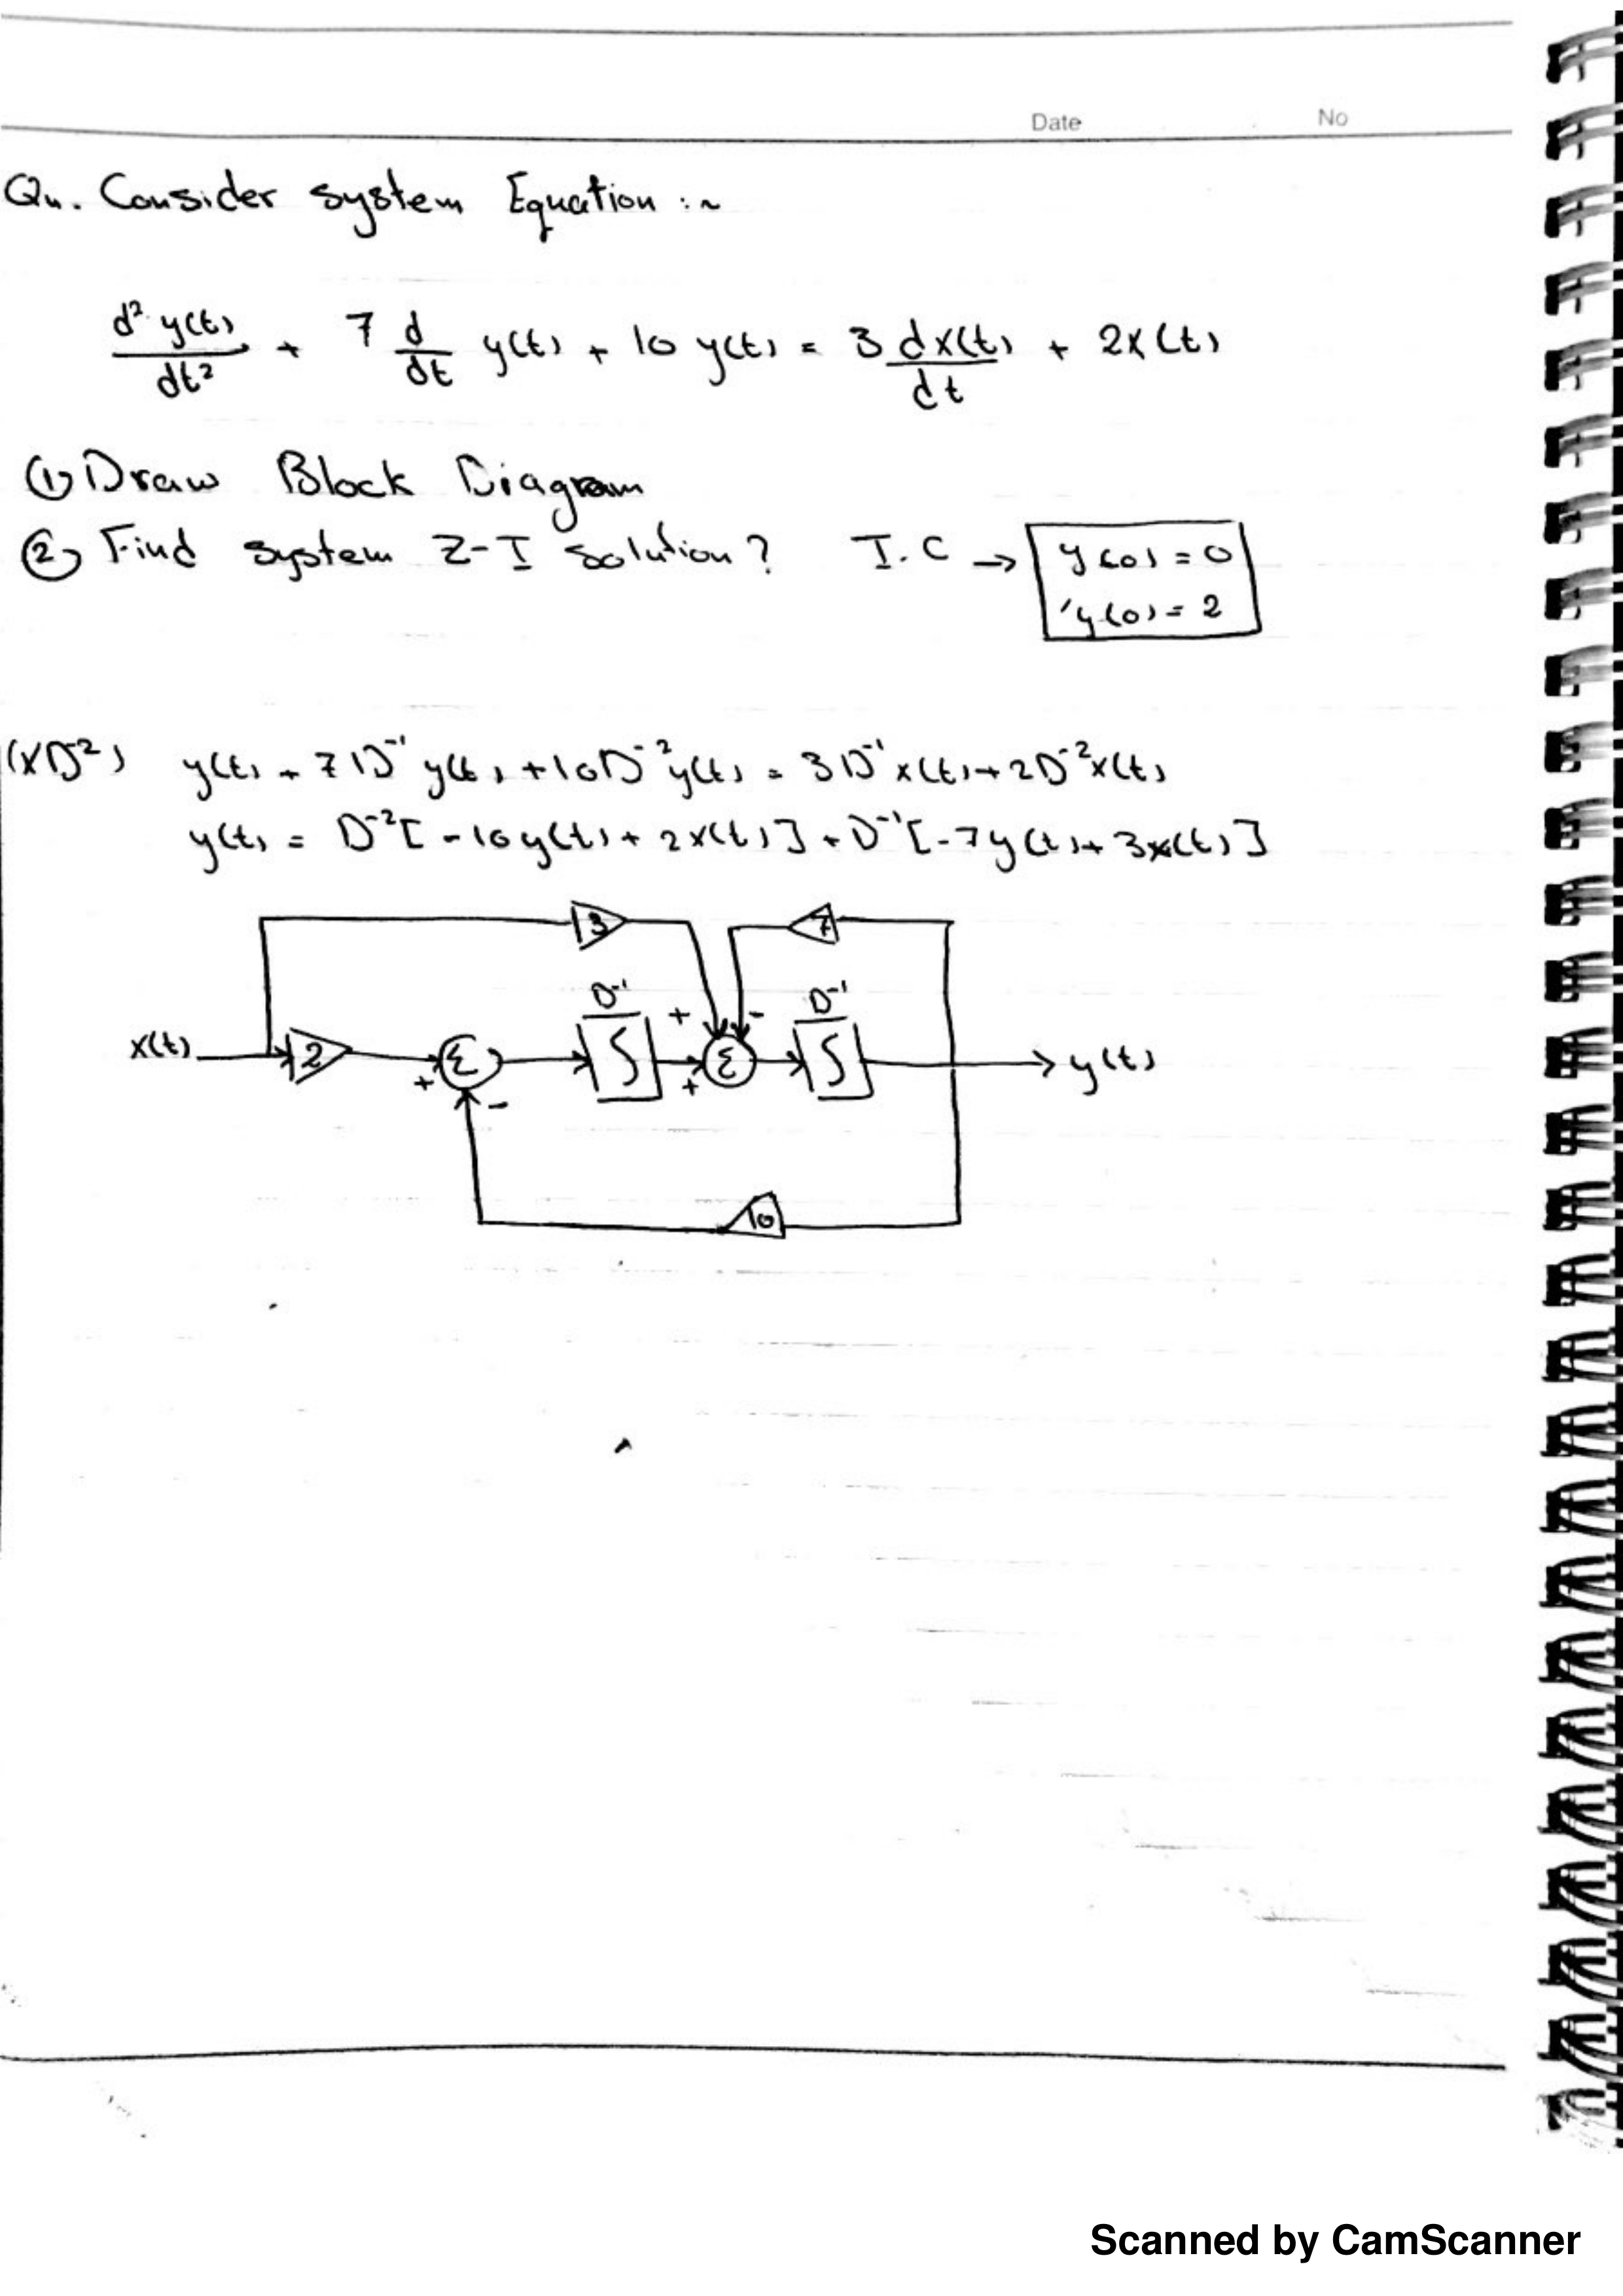 Date No
Qu. Consider system Equation :~
d² y(t)/dt² + 7 d/dt y(t) + 10 y(t) = 3 dx(t)/dt + 2x(t)
① Draw Block Diagram
② Find system Z-I solution? I.C → y(0) = 0
'y(0) = 2
(xD⁻²) y(t) + 7D⁻¹ y(t) + 10D⁻² y(t) = 3D⁻¹ x(t) + 2D⁻² x(t)
y(t) = D⁻² [ -10 y(t) + 2x(t) ] + D⁻¹ [ -7 y(t) + 3x(t) ]
3 7
D⁻¹ D⁻¹
+ -
x(t) 2 Σ ∫ Σ ∫ y(t)
+ - +
10
Scanned by CamScanner